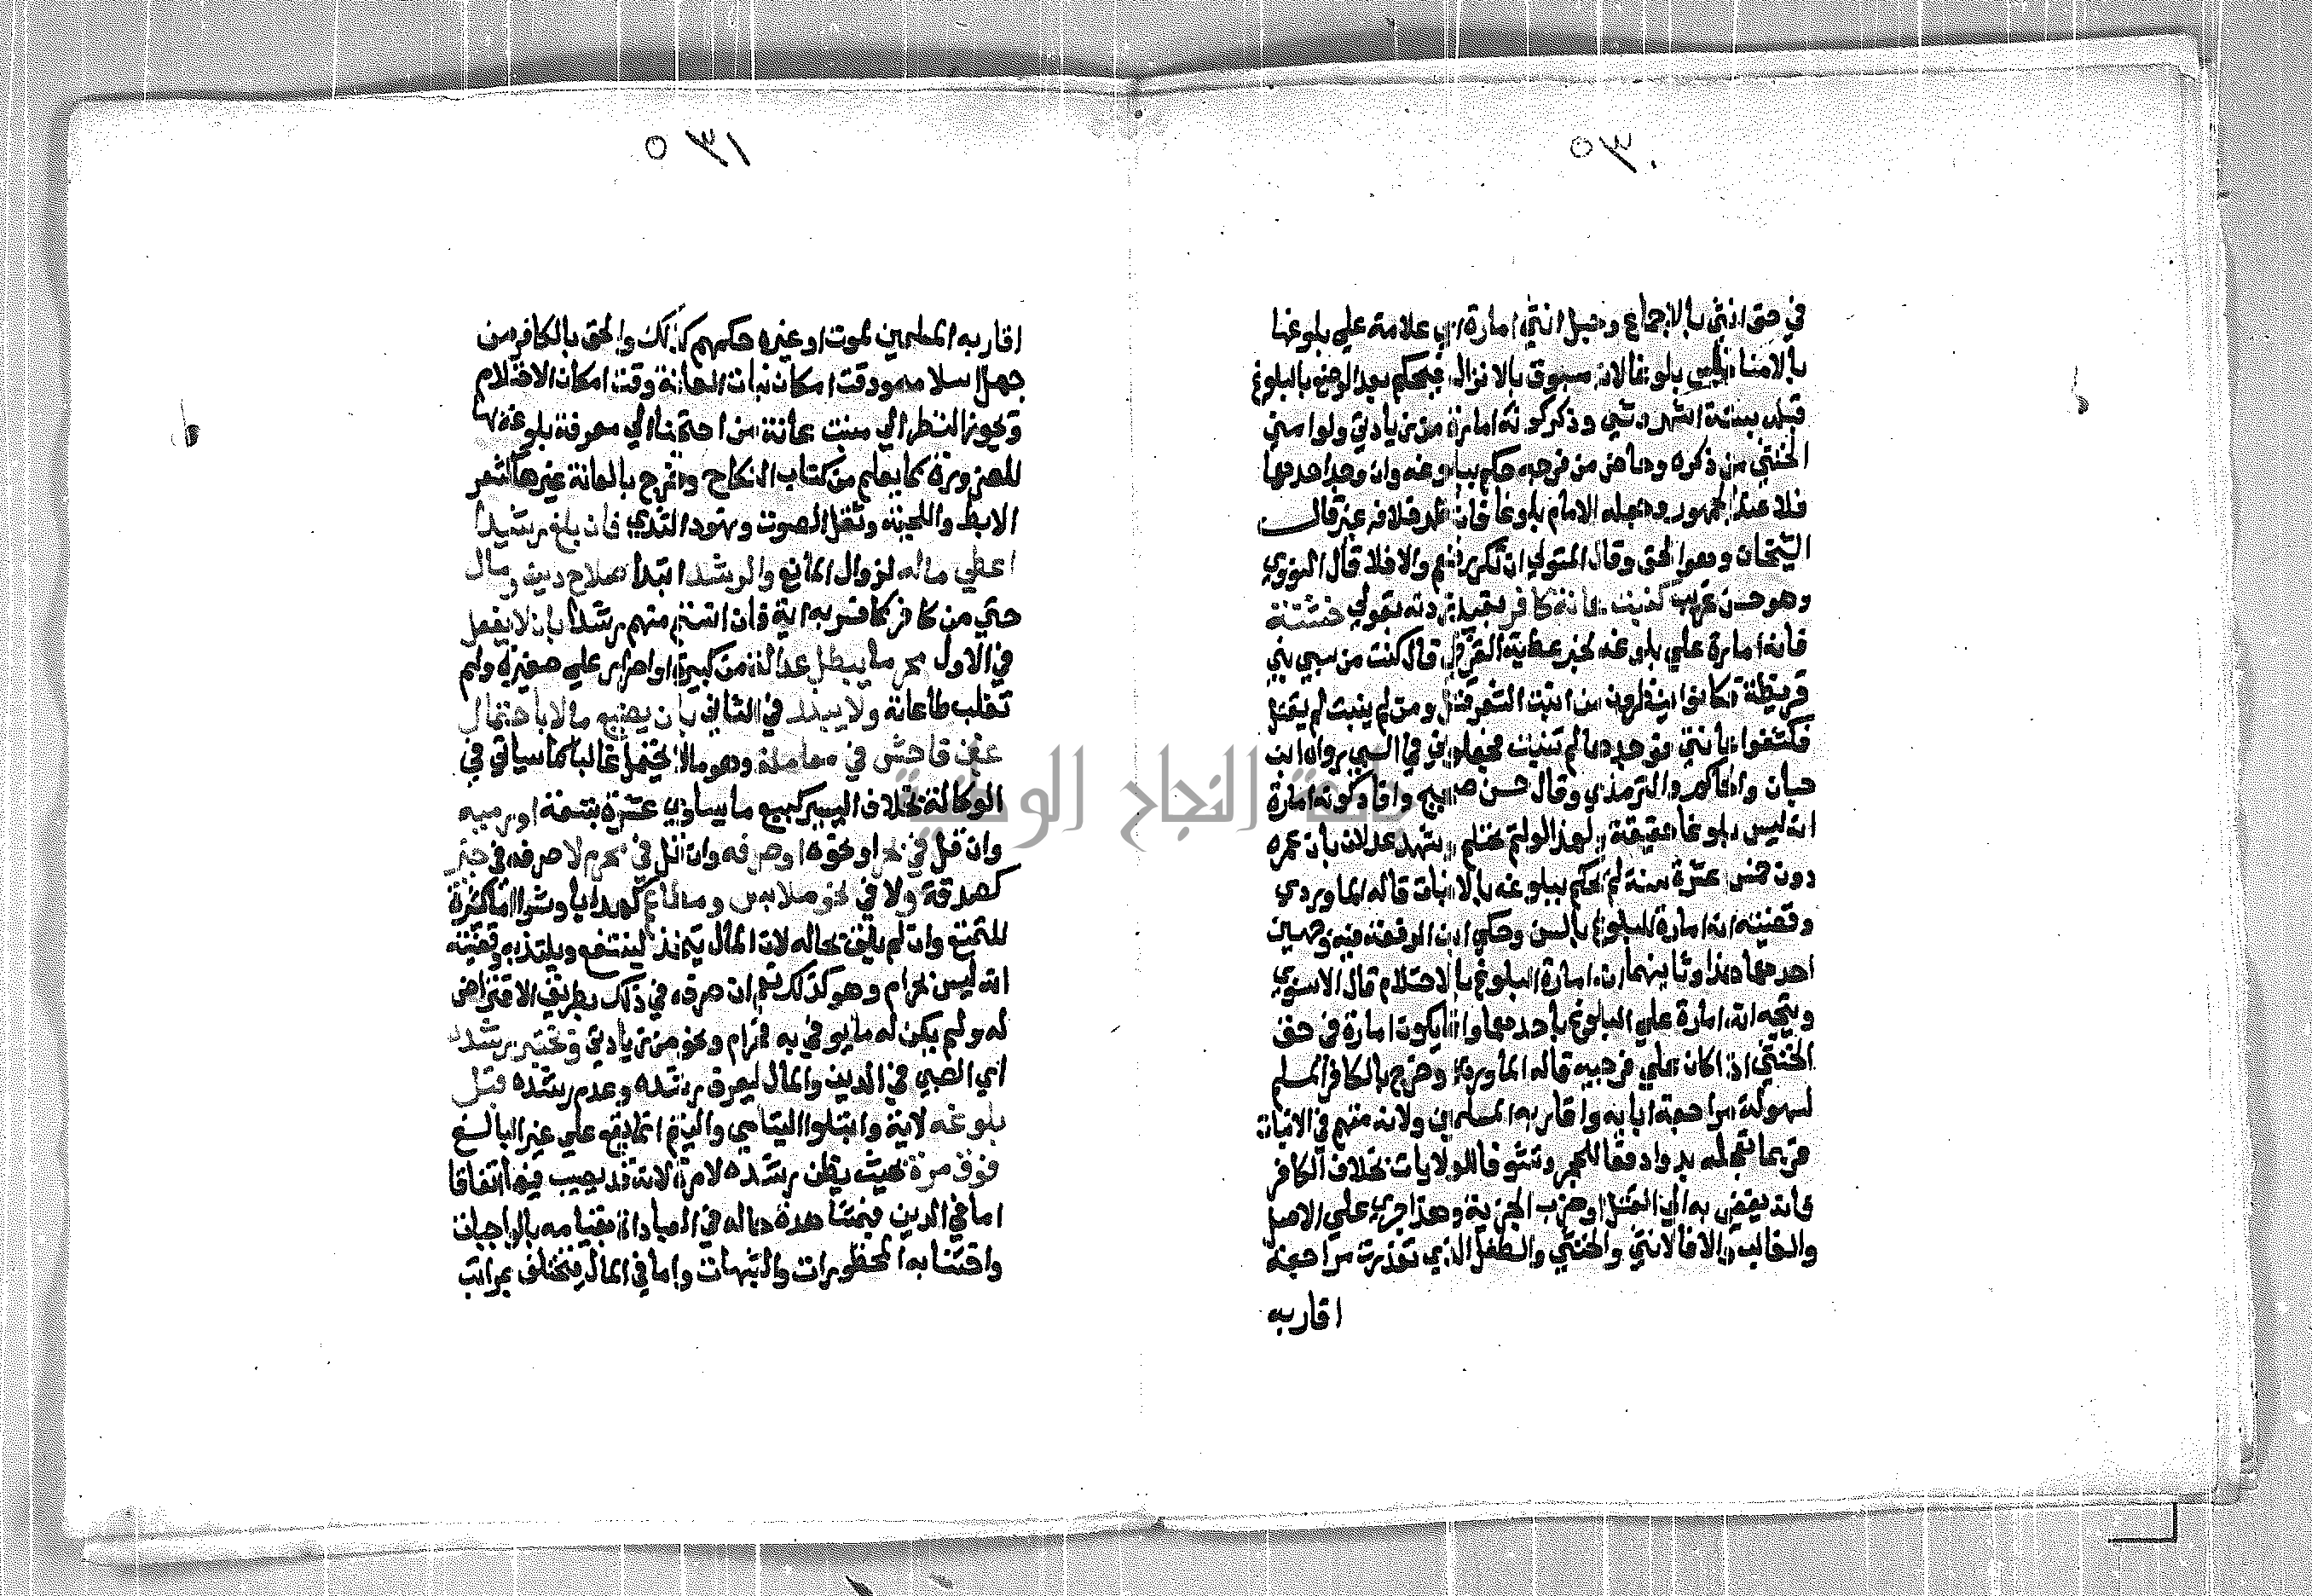 ٥٣٠
في حق انثي بالاجماع وحبل انثي امارة اي علامة علي بلوغها
بالامناء فليس بلوغا لانه مسبوق بالانزال فيحكم بعد الوضع بالبلوغ
قبله بستة اشهر وشي وذكر كونه امارة من زيادتي ولو امني
الخنثي من ذكره وحاض من فرجه حكم ببلوغه وان وجد احدهما
فلا عند الجمهور وجعله الامام بلوغا فان ظهر خلافه غير قال
الشيخان وهو الحق وقال المتولي ان تكرر فنعم والا فلا قال النووي
وهو حسن غريب كنبت عانة كافر بقيد زدته بقولي خشنة
فانه امارة علي بلوغه لخبر عطية القرظي قال كنت من سبي بني
قريظة فكانوا ينظرون من انبت الشعر قتل ومن لم ينبت لم يقتل
فكشفوا عانتي فوجدوها لم تنبت فجعلوني في السبي رواه ابن
حبان والحاكم والترمذي وقال حسن صحيح وافاد كونه امارة
انه ليس بلوغا حقيقة ولهذا لو لم يحتلم وشهد عدلان بان عمره
دون خمس عشرة سنة لم يحكم ببلوغه بالانبات قاله الماوردي
وقضيته انه امارة للبلوغ بالسن وحكي ابن الرفعة فيه وجهين
احدهما هذا وثانيهما انه امارة البلوغ بالاحتلام قال الاسنوي
ويتجه انه امارة علي البلوغ باحدهما وانما يكون امارة في حق
الخنثي اذا كان علي فرجيه قاله الماوردي وخرج بالكافر المسلم
لسهولة مراجعة ابايه واقاربه المسلمين ولانه متهم في الانبات
فربما تعجله بدواء دفعا للحجر وتشوفا للولايات بخلاف الكافر
فانه يفضي به الي القتل او ضرب الجزية وهذا جري علي الاصل
والغالب والا فالانثي والخنثي والطفل الذي تعذرت مراجعة
اقاربه
٥٣١
اقاربه المسلمين لموت او غيره حكمهم كذلك والحق بالكافر من
جهل اسلامه ووقت امكان نبات العانة وقت امكان الاحتلام
ويجوز النظر الي منبت عانة من احتجنا الي معرفة بلوغه بها
للضرورة كما يعلم من كتاب النكاح وخرج بالعانة غيرها كشعر
الابط واللحية وثقل الصوت ونهود الثدي فان بلغ رشيدا
اعطي ماله لزوال المانع والرشد ابتداء صلاح دين ومال
حتي من كافر كما فسر به اية فان انستم منهم رشدا بان لا يفعل
في الاول محرما يبطل عدالة من كبيرة او اصرار علي صغيرة ولم
تغلب طاعاته ولا يبذر في الثاني بان يضيع مالا باحتمال
غبن فاحش في معاملة وهو ما لا يحتمل غالبا كما سياتي في
الوكالة بخلاف اليسير كبيع ما يساوي عشرة بتسعة او رميه
وان قل في بحر او نحوه او صرفه وان قل في محرم لا صرفه في خير
كصدقة ولا في نحو ملابس ومطاعم كهدايا وشراء اماء كثيرة
للتمتع وان لم يلق بحاله لان المال يتخذ لينتفع ويلتذ به وقضيته
انه ليس بحرام وهو كذلك نعم ان صرفه في ذلك بطريق الاقتراض
له ولم يكن له ما يوفي به فحرام ونحو من زيادتي ويختبر رشده
اي الصبي في الدين والمال ليعرف رشده وعدم رشده قبل
بلوغه لاية وابتلوا اليتامي واليتيم انما يقع علي غير البالغ
فوق مرة بحيث يظن رشده لا مرة لانه قد يصيب فيها اتفاقا
اما في الدين فبمشاهدة حاله في العبادات بقيامه بالواجبات
واجتنابه المحظورات والشبهات واما في المال فيختلف بمراتب
جامعة النجاح الوطنية